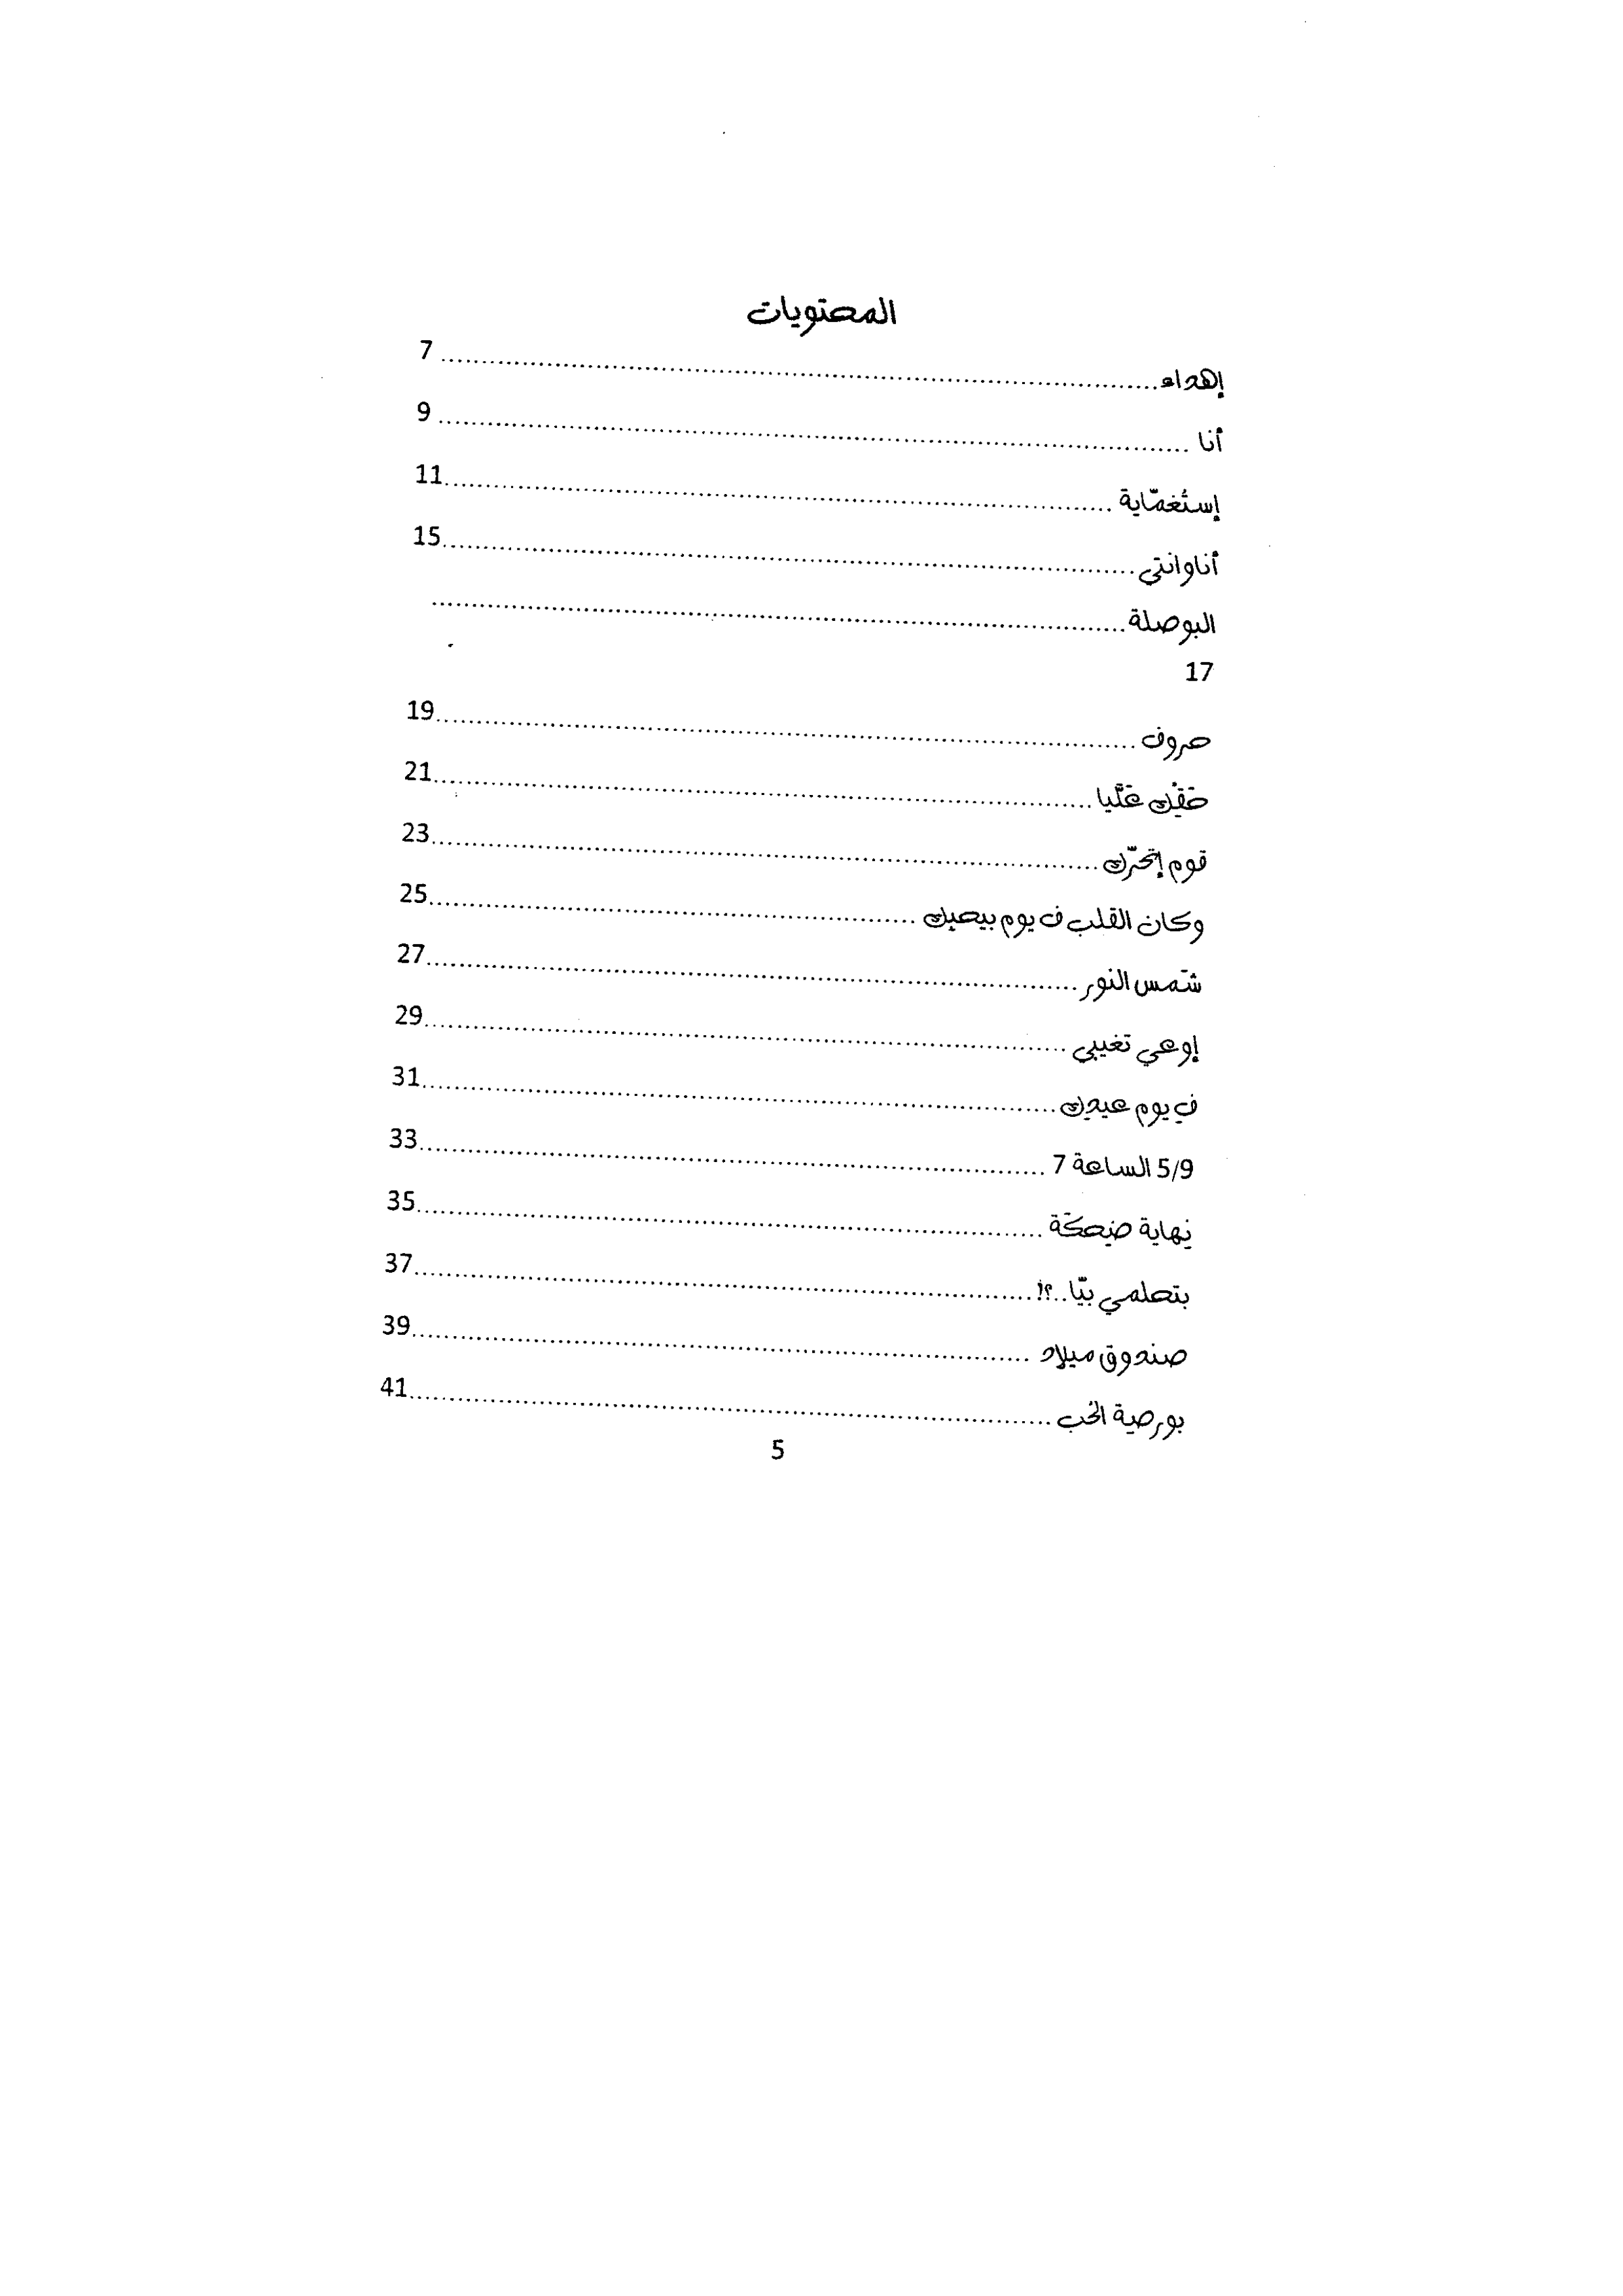 المحتويات
إهداء ........ 7
أنا ........ 9
إستُغمّاية ........ 11
أناوانتي ........ 15
البوصلة ........
17
حروف ........ 19
حقِّك عَليّا ........ 21
قوم إتحرّك ........ 23
وكان القلب ف يوم بيحبك ........ 25
شمس النور ........ 27
إوعي تغيبي ........ 29
في يوم عيدِك ........ 31
5/9 الساعة 7 ........ 33
نِهاية ضِحكَة ........ 35
بتحلمي بيّا..؟! ........ 37
صندوق ميلاد ........ 39
بورصِة الحُب ........ 41
5